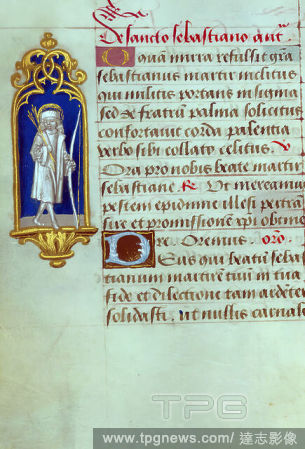 De sancto sebastiano añt̃
O quam mira refulsit gr̃a
sebastianus martir inclitus
qui militis portans insignia
sed de fratrum palma solicitus
confortauit corda palentia
verbo sibi collato celitus. V
Ora pro nobis beate martir
sebastiane. R. Ut mereamur
pestem epidimie illesi pertrãs
ire et promissionem xp̃i obtine
Ore. Oremus. or̃o.
Deus qui beatũ sebas
tianum martirẽ tuũ in tua
fide et dilectione tam ardẽter
solidasti. ut nullis carnale
TPG
www.tpgnews.com/ 達志影像